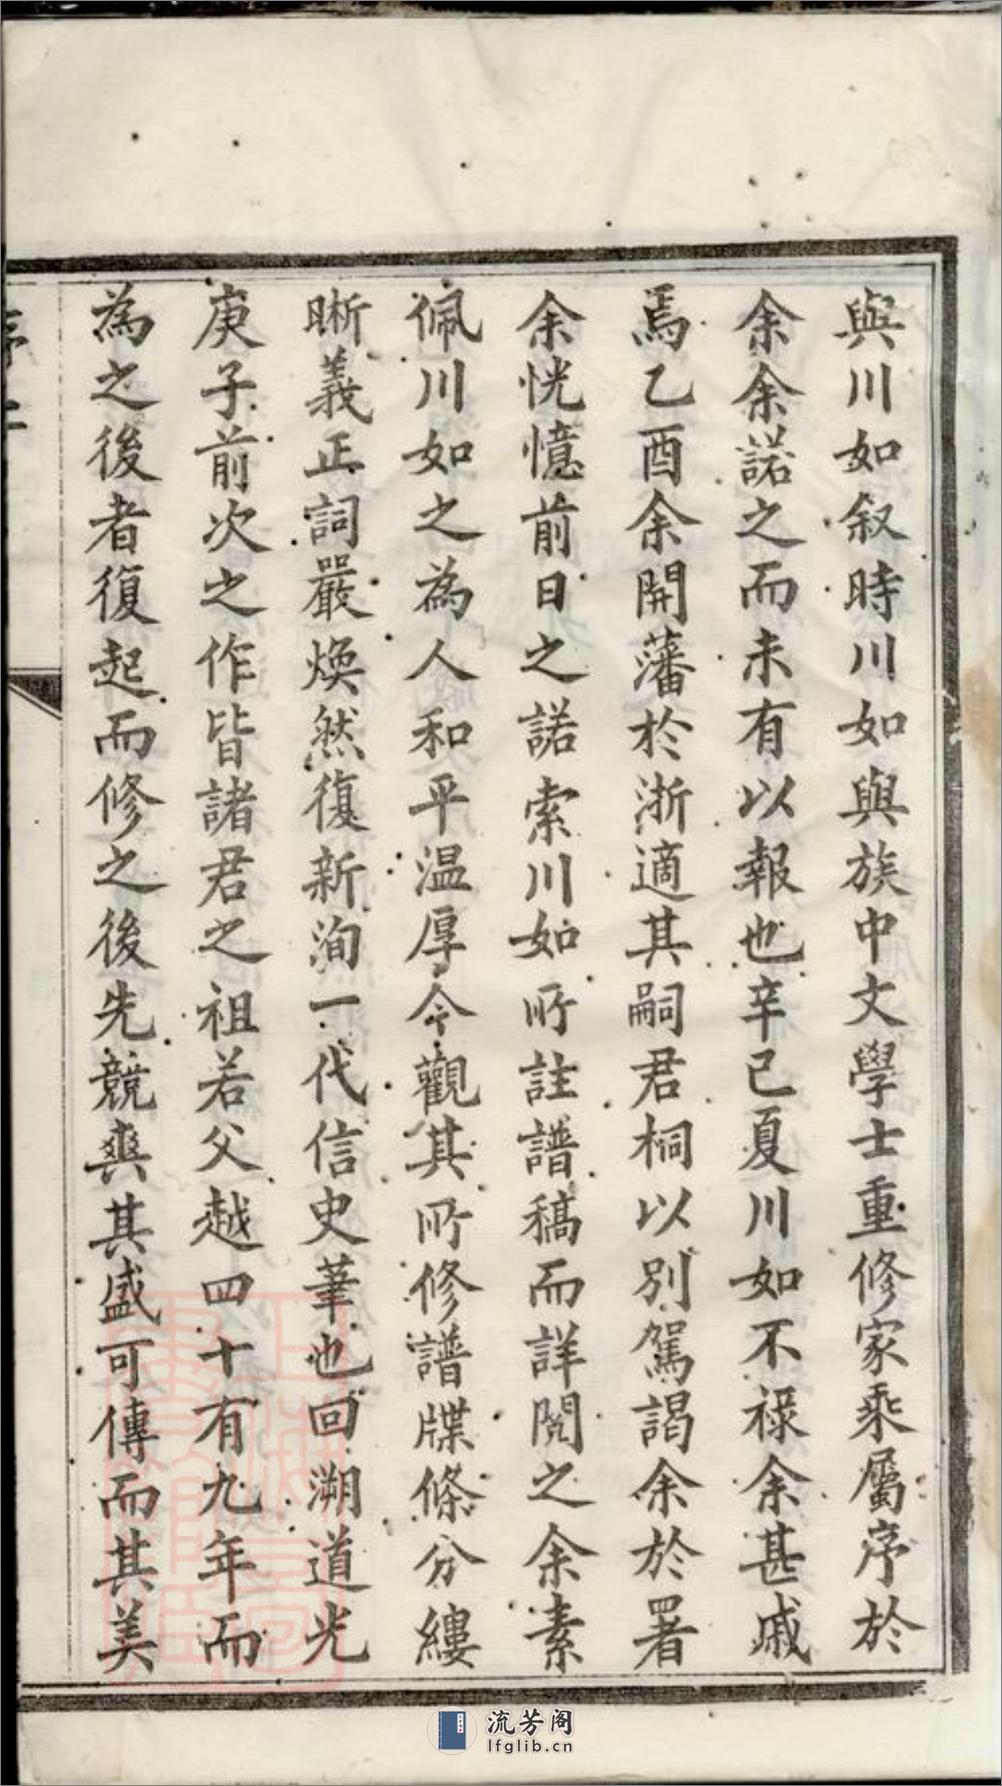 與川如叙時川如與族中文學士重修家乘屬序於
余余諾之而未有以報也辛巳夏川如不祿余甚戚
焉乙酉余開藩於浙適其嗣君桐以別駕謁余於署
余恍憶前日之諾索川如所註譜稿而詳閱之余素
佩川如之為人和平温厚今觀其所修譜牒條分縷
晰義正詞嚴煥然復新洵一代信史筆也回溯道光
庚子前次之作皆諸君之祖若父越四十有九年而
為之後者復起而修之後先競爽其盛可傳而其美
序
流芳阁
lfglib.cn